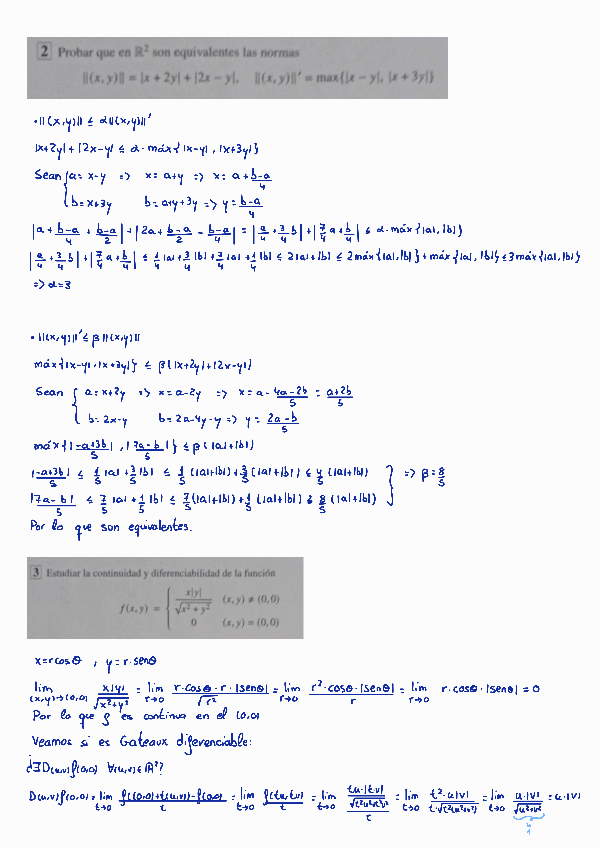 2 Probar que en ℝ² son equivalentes las normas
||(x, y)|| = |x + 2y| + |2x − y|,   ||(x, y)||′ = max{|x − y|, |x + 3y|}
• ||(x,y)|| ≤ α||(x,y)||′
|x+2y| + |2x−y| ≤ α · máx{|x−y|, |x+3y|}
Sean { a = x−y => x = a+y => x = a + (b−a)/4
b = x+3y   b = a+y+3y => y = (b−a)/4
|a + (b−a)/4 + (b−a)/2| + |2a + (b−a)/2 − (b−a)/4| = |a/4 + 3/4 b| + |7/4 a + b/4| ≤ α · máx{|a|, |b|}
|a/4 + 3/4 b| + |7/4 a + b/4| ≤ 1/4 |a| + 3/4 |b| + 7/4 |a| + 1/4 |b| ≤ 2|a| + |b| ≤ 2 máx{|a|, |b|} + máx{|a|, |b|} ≤ 3 máx{|a|, |b|}
=> α = 3
• ||(x,y)||′ ≤ β ||(x,y)||
máx{|x−y|, |x+3y|} ≤ β (|x+2y| + |2x−y|)
Sean { a = x+2y => x = a−2y => x = a − (4a−2b)/5 = (a+2b)/5
b = 2x−y   b = 2a−4y−y => y = (2a−b)/5
máx{|(−a+3b)/5|, |(7a−b)/5|} ≤ β (|a|+|b|)
|−a+3b|/5 ≤ 1/5 |a| + 3/5 |b| ≤ 1/5 (|a|+|b|) + 3/5 (|a|+|b|) ≤ 4/5 (|a|+|b|)
|7a−b|/5 ≤ 7/5 |a| + 1/5 |b| ≤ 7/5 (|a|+|b|) + 1/5 (|a|+|b|) ≤ 8/5 (|a|+|b|) } => β = 8/5
Por lo que son equivalentes.
3 Estudiar la continuidad y diferenciabilidad de la función
f(x, y) = { x|y|/√(x² + y²)   (x, y) ≠ (0, 0)
0   (x, y) = (0, 0)
x = r cos θ , y = r · sen θ
lim (x,y)→(0,0) x|y|/√(x²+y²) = lim r→0 r · cos θ · r · |sen θ|/√r² = lim r→0 r² · cos θ · |sen θ|/r = lim r→0 r · cos θ · |sen θ| = 0
Por lo que f es continua en el (0,0)
Veamos si es Gateaux diferenciable:
¿∃ D(u,v) f(0,0) ∀(u,v) ∈ ℝ²?
D(u,v) f(0,0) = lim t→0 f((0,0)+t(u,v))−f(0,0)/t = lim t→0 f(tu,tv)/t = lim t→0 (tu·|tv|/√(t²u²+t²v²))/t = lim t→0 t²·u|v|/t·√(t²(u²+v²)) = lim t→0 u·|v|/√(u²+v²) = u·|v|
1